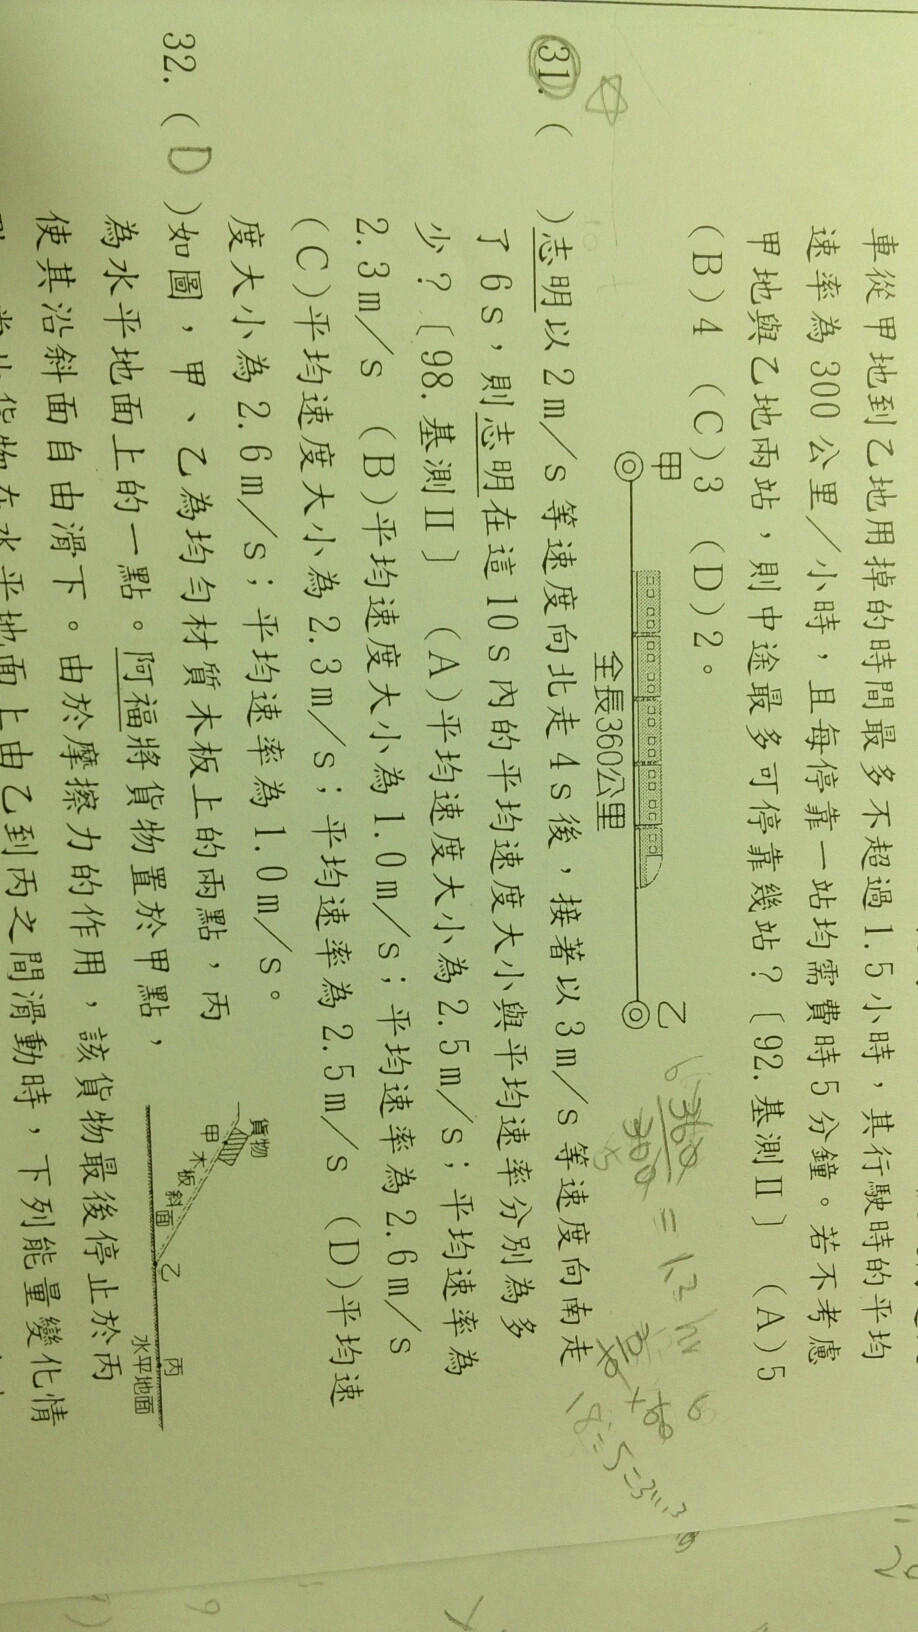 車從甲地到乙地用掉的時間最多不超過1.5小時,其行駛時的平均
速率為300公里/小時,且每停靠一站均需費時5分鐘。若不考慮
甲地與乙地兩站,則中途最多可停靠幾站?〔92.基測Ⅱ〕 (A)5
(B)4 (C)3 (D)2。
甲
乙
全長360公里
360/300 = 1.2 hr
18÷5=3...3
31. ( )志明以2m/s等速度向北走4s後,接著以3m/s等速度向南走
了6s,則志明在這10s內的平均速度大小與平均速率分別為多
少?〔98.基測Ⅱ〕 (A)平均速度大小為2.5m/s;平均速率為
2.3m/s (B)平均速度大小為1.0m/s;平均速率為2.6m/s
(C)平均速度大小為2.3m/s;平均速率為2.5m/s (D)平均速
度大小為2.6m/s;平均速率為1.0m/s。
32. (D)如圖,甲、乙為均勻材質木板上的兩點,丙
為水平地面上的一點。阿福將貨物置於甲點,
使其沿斜面自由滑下。由於摩擦力的作用,該貨物最後停止於丙
貨物在水平地面上由乙到丙之間滑動時,下列能量變化情
貨物
甲
木板斜面
乙
丙
水平地面